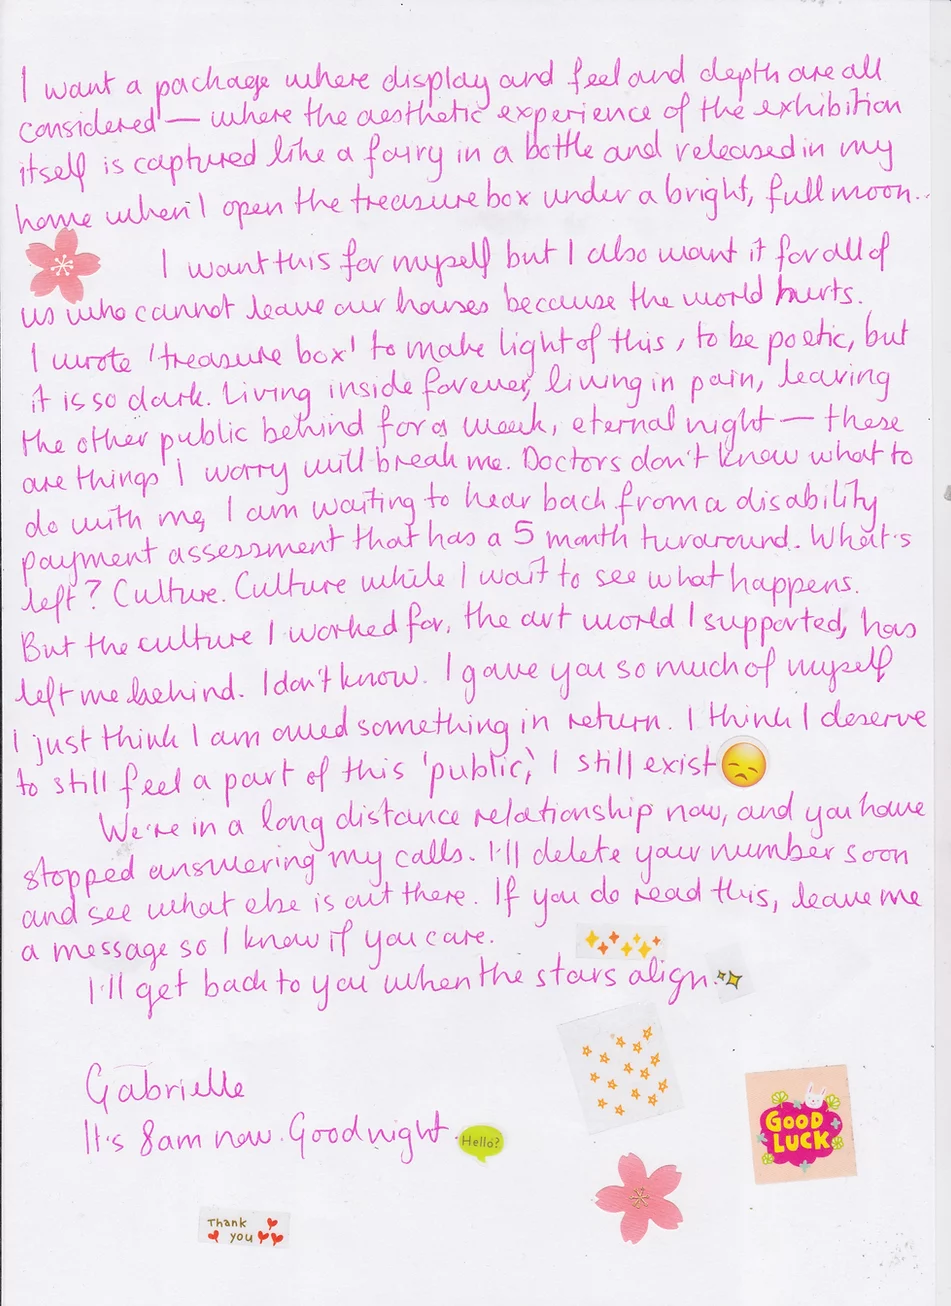 I want a package where display and feel and depth are all
considered — where the aesthetic experience of the exhibition
itself is captured like a fairy in a bottle and released in my
home when I open the treasure box under a bright, full moon..
I want this for myself but I also want it for all of
us who cannot leave our houses because the world hurts.
I wrote 'treasure box' to make light of this, to be poetic, but
it is so dark. Living inside forever, living in pain, leaving
the other public behind for a week, eternal night — these
are things I worry will break me. Doctors don't know what to
do with me, I am waiting to hear back from a disability
payment assessment that has a 5 month turaround. What's
left? Culture. Culture while I wait to see what happens.
But the culture I worked for, the art world I supported, has
left me behind. I don't know. I gave you so much of myself
I just think I am owed something in return. I think I deserve
to still feel a part of this 'public', I still exist
We're in a long distance relationship now, and you have
stopped answering my calls. I'll delete your number soon
and see what else is out there. If you do read this, leave me
a message so I know if you care.
I'll get back to you when the stars align.
Gabrielle
It's 8am now. Goodnight.
Hello?
GOOD
LUCK
Thank
you